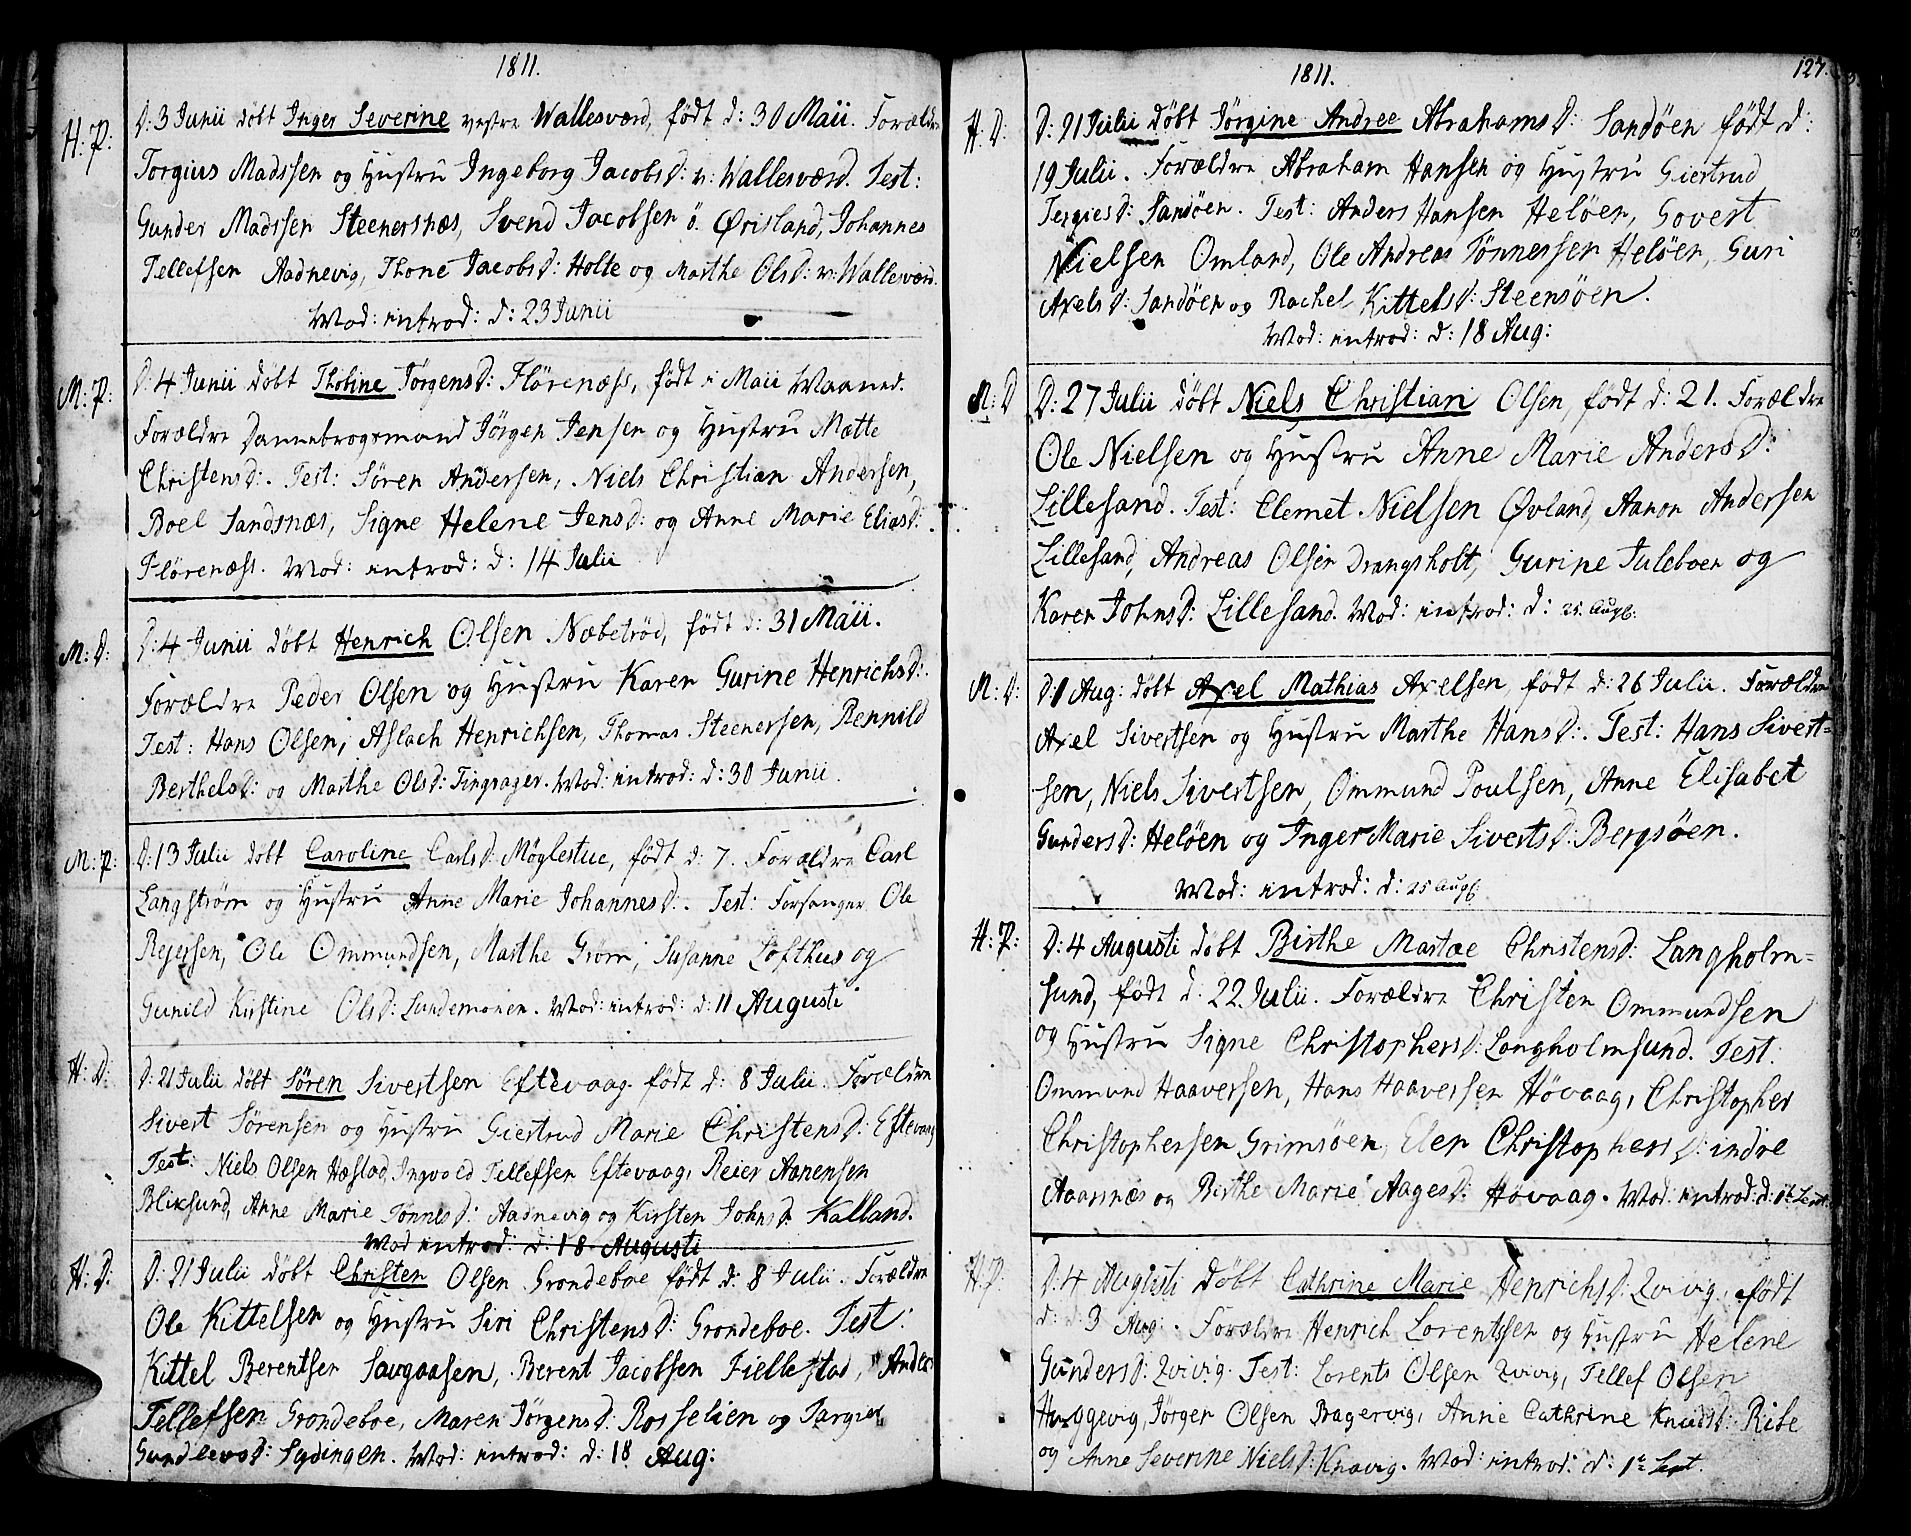 1811.
H: P: D: 3 Junii döbt Inger Severine vestre Wallesværd, födt d: 30 Maii. Forældre
Torgius Madssen og Hustru Ingeborg Jacobsd: v: Wallesværd. Test:
Gunder Madssen Steenersnæs, Svend Jacobsen ö. Ørisland, Johannes
Tellefsen Aadnevig, Thone Jacobsd: Holte og Marthe Olsd: v: Wallesværd.
Mod: introd: d: 23 Junii
M: P: D: 4 Junii döbt Thobine Jörgensd: Flörenæss, födt i Maii Maaned.
Forældre Dannebrogsmand Jörgen Jensen og Hustru Mætte
Christensd:. Test: Sören Andersen, Niels Christian Andersen,
Boel Sandsnæs, Signe Helene Jensd: og Anne Marie Eliasd:.
Flörenæss. Mod: introd: d: 14 Julii
M: D: D: 4 Junii döbt Henrich Olsen Næbetröd, födt d: 31 Maii.
Forældre Peder Olsen og Hustru Karen Gurine Henrichsd:.
Test: Hans Olsen, Aslach Henrichsen, Thomas Steenersen, Rennild
Berthelsd: og Marthe Olsd: Tingsager. Mod: introd: d: 30 Junii.
M: P: D: 13 Julii döbt Caroline Carlsd: Møglestue, födt d: 7. Forældre Carl
Langström og Hustru Anne Marie Johannesd:. Test: Forsanger Ole
Rejersen, Ole Ommundsen, Marthe Gröm, Susanne Lofthus og
Gunild Kirstine Olsd: Sundemonen. Mod: introd: d: 11 Augusti
H: D: D: 21 Julii döbt Sören Sivertsen Eftevaag födt d: 8 Julii. Forældre
Sivert Sörensen og Hustru Giertrud Marie Christensd: Eftevaag
Test: Niels Olsen Hæstad, Ingvold Tellefsen Eftevaag, Reier Aanensen
Blixsund, Anne Marie Tönnesd: Aadnevig og Kirsten Johnsd: Kalland.
Mod introd: d: 18 Augusti
H: D: D: 21 Julii döbt Christen Olsen Grondeboe födt d: 8 Julii. Forældre
Ole Kittelsen og Hustru Siri Christensd: Grondeboe. Test:
Kittel Berentsen Saugaasen, Berent Jacobsen Fiellestad, Anders
Tellefsen Grondeboe, Maren Jörgensd: Rosselien og Targier
Gundlevsd: Sydingen. Mod: introd: d: 18 Aug:
1811. 127.
H: D: D: 21 Julii döbt Jörgine Andree Abrahamsd: Sandöen födt d:
19 Julii. Forældre Abraham Hansen og Hustru Giertrud
Tergiesd: Sandöen. Test: Anders Hansen Helöen, Govert
Nielsen Omland, Ole Andreas Tönnessen Helöen, Guri
Axelsd: Sandöen og Rachel Kittelsd: Steensöen.
Mod: introd: d: 18 Aug:
M: D D: 27 Julii döbt Niels Christian Olsen, födt d: 21. Forældre
Ole Nielsen og Hustru Anne Marie Andersd:
Lillesand. Test: Clemet Nielsen Øvland, Aanon Andersen
Lillesand, Andreas Olsen Drangsholt, Gurine Juleboen og
Karen Johnsd: Lillesand. Mod: introd: d: 25. Augs:
M: D: D: 1 Aug: döbt Axel Mathias Axelsen, födt d: 26 Julii. Forældre
Axel Sivertsen og Hustru Marthe Hansd:. Test: Hans Sivert=
sen, Niels Sivertsen, Ommund Poulsen, Anne Elisabet
Gundersd: Helöen og Inger Marie Sivertsd: Bergsöen.
Mod: introd: d: 25 Augs:
H: P: D: 4 Augusti döbt Birthe Martae Christensd: Langholm=
sund, födt d: 22 Julii. Forældre Christen Ommundsen
og Hustru Signe Christophersd: Langholmsund. Test:
Ommund Haaversen, Hans Haaversen Hövaag, Christopher
Christophersen Grimsöen, Elen Christophersd: indre
Aaarsnæs og Birthe Marie Aagesd: Hövaag. Mod: introd: d: Sept:
H: P: D: 4 Augusti döbt Cathrine Marie Henrichsd: Qvivig, födt
d: 3 Aug:. Forældre Henrich Lorentssen og Hustru Helene
Gundersd: Qvivig. Test: Lorents Olsen Qvivig, Tellef Olsen
Jörgen Olsen Bragervig, Anne Cathrine Knudsd: Ribe
og Anne Severine Nielsd: Knavig. Mod: introd: d: 1te Sept.